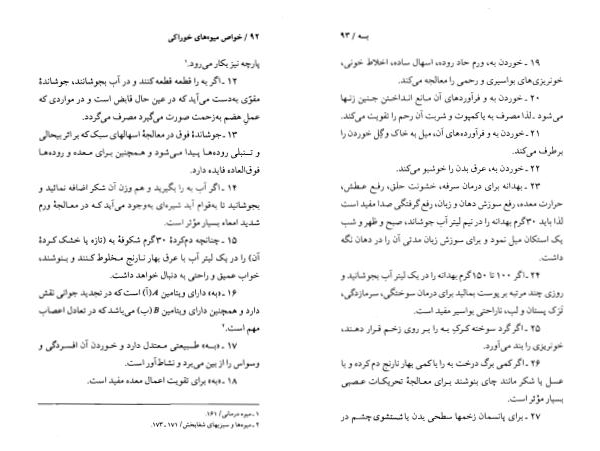 ۹۲ / خواص میوه‌های خوراکی
پارچه نیز بکار می‌رود.۱
۱۲ ـ اگر به را قطعه قطعه کنند و در آب بجوشانند، جوشاندهٔ
مقوّی به‌دست می‌آید که در عین حال قابض است و در مواردی که
عمل هضم به‌زحمت صورت می‌گیرد مصرف می‌گردد.
۱۳ ـ جوشاندهٔ فوق در معالجهٔ اسهالهای سبک که بر اثر بیحالی
و تنبلی روده‌ها پیدا می‌شود و همچنین برای معده و روده‌ها
فوق‌العاده فایده دارد.
۱۴ ـ اگر آب به را بگیرید و هم وزن آن شکر اضافه نمائید و
بجوشانید تا به‌قوام آید شیره‌ای به‌وجود می‌آید که در معالجهٔ ورم
شدید امعاء بسیار مؤثر است.
۱۵ ـ چنانچه دم‌کردهٔ ۳۰گرم شکوفهٔ به (تازه یا خشک کردهٔ
آن) را در یک لیتر آب با عرق بهار نارنج مخلوط کنند و بنوشند،
خواب عمیق و راحتی به دنبال خواهد داشت.
۱۶ ـ «به» دارای ویتامین A (آ) است که در تجدید جوانی نقش
دارد و همچنین دارای ویتامین B (ب) می‌باشد که در تعادل اعصاب
مهم است.۲
۱۷ ـ «به» طبیعتی معتدل دارد و خوردن آن افسردگی و
وسواس را از بین می‌برد و نشاط‌آور است.
۱۸ ـ «به» برای تقویت اعمال معده مفید است.
۱ ـ میوه درمانی / ۱۶۱.
۲ ـ میوه‌ها و سبزیهای شفابخش / ۱۷۱ ـ ۱۷۳.
بـه / ۹۳
۱۹ ـ خوردن به، ورم حاد روده، اسهال ساده، اخلاط خونی،
خونریزی‌های بواسیری و رحمی را معالجه می‌کند.
۲۰ ـ خوردن به و فرآورده‌های آن مانع انداختن جنین زنها
می‌شود ـ لذا مصرف به یا کمپوت و شربت آن رحم را تقویت می‌کند.
۲۱ ـ خوردن به و فرآورده‌های آن، میل به خاک و گِل خوردن را
برطرف می‌کند.
۲۲ ـ خوردن به، عرق بدن را خوشبو می‌کند.
۲۳ ـ بهدانه برای درمان سرفه، خشونت حلق، رفع عطش،
حرارت معده، رفع سوزش دهان و زبان، رفع‌گرفتگی صدا مفید است
لذا باید ۳۰گرم بهدانه را در نیم لیتر آب جوشاند، صبح و ظهر و شب
یک استکان میل نمود و برای سوزش زبان مدتی آن را در دهان نگه
داشت.
۲۴ ـ اگر ۱۰۰ تا ۱۵۰گرم بهدانه را در یک لیتر آب بجوشانید و
روزی چند مرتبه بر پوست بمالید برای درمان سوختگی، سرمازدگی،
تَرَک پستان و لب، ناراحتی بواسیر مفید است.
۲۵ ـ اگر گرد سوخته کرکِ به را بر روی زخم قرار دهند،
خونریزی را بند می‌آورد.
۲۶ ـ اگر کمی برگ درخت به را با کمی بهار نارنج دم کرده و با
عسل یا شکر مانند چای بنوشند برای معالجهٔ تحریکات عصبی
بسیار مؤثر است.
۲۷ ـ برای پانسمان زخمها سطحی بدن یا شستشوی چشم در